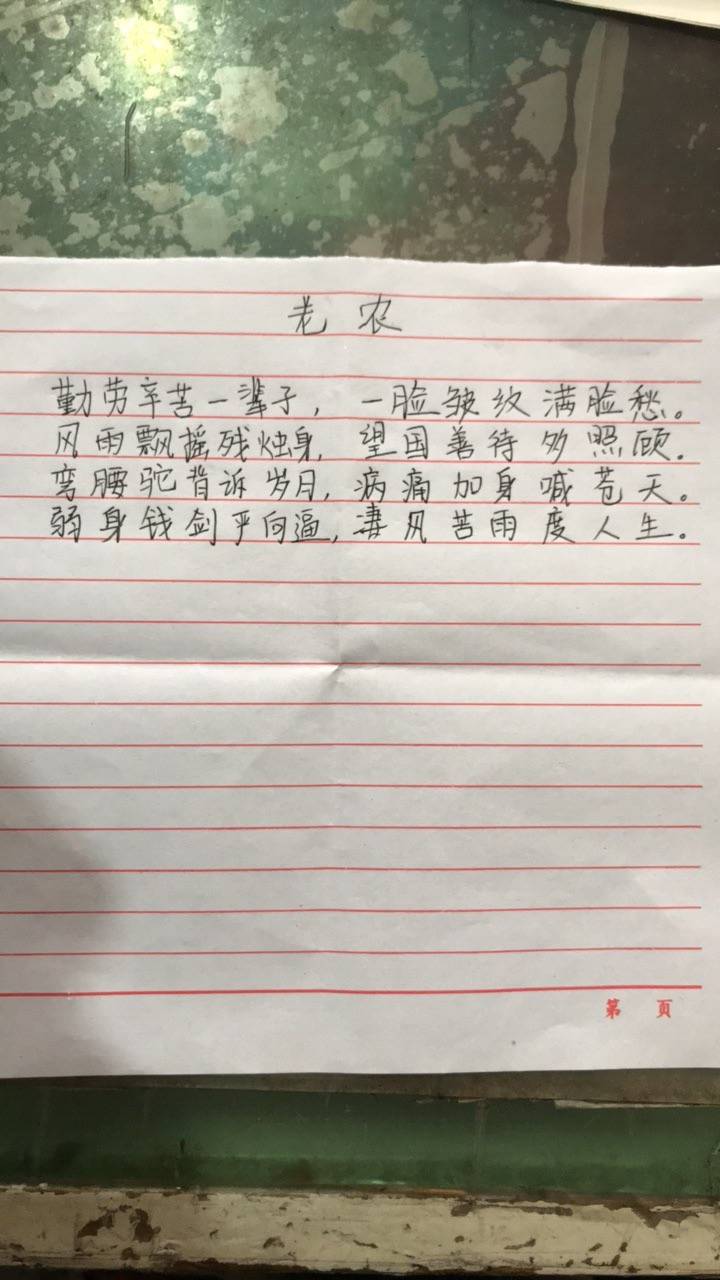 老农
勤劳辛苦一辈子，一脸皱纹满脸愁。
风雨飘摇残烛身，望国善待多照顾．
弯腰驼背诉岁月，病痛加身喊苍天。
弱身钱剑乎向逼，凄风苦雨度人生。
第 页